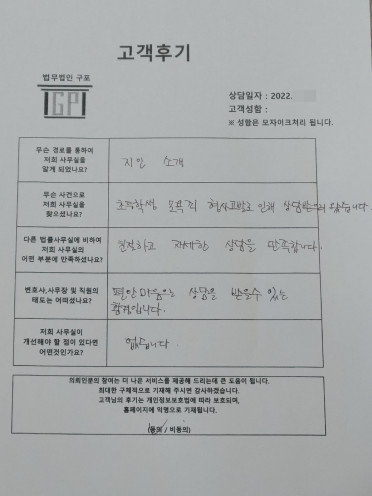 고객후기
법무법인 구포
GP
상담일자 : 2022.
고객성함 :
※ 성함은 모자이크처리 됩니다.
무슨 경로를 통하여
저희 사무실을
알게 되었나요?
지인 소개
무슨 사건으로
저희 사무실을
찾으셨나요?
초등학생 형사고발로 인해 상담받으러 왔습니다.
다른 법률사무실에 비하여
저희 사무실의
어떤 부분에 만족하셨나요?
친절하고 자세한 상담을 만족합니다.
변호사,사무장 및 직원의
태도는 어떠셨나요?
편안마음으로 상담을 받을수 있는
환경입니다.
저희 사무실이
개선해야 할 점이 있다면
어떤것인가요?
없습니다.
의뢰인분의 참여는 더 나은 서비스를 제공해 드리는데 큰 도움이 됩니다.
최대한 구체적으로 기재해 주시면 감사하겠습니다.
고객님의 후기는 개인정보보호법에 따라 보호되며,
홈페이지에 익명으로 기재됩니다.
(동의 / 비동의)